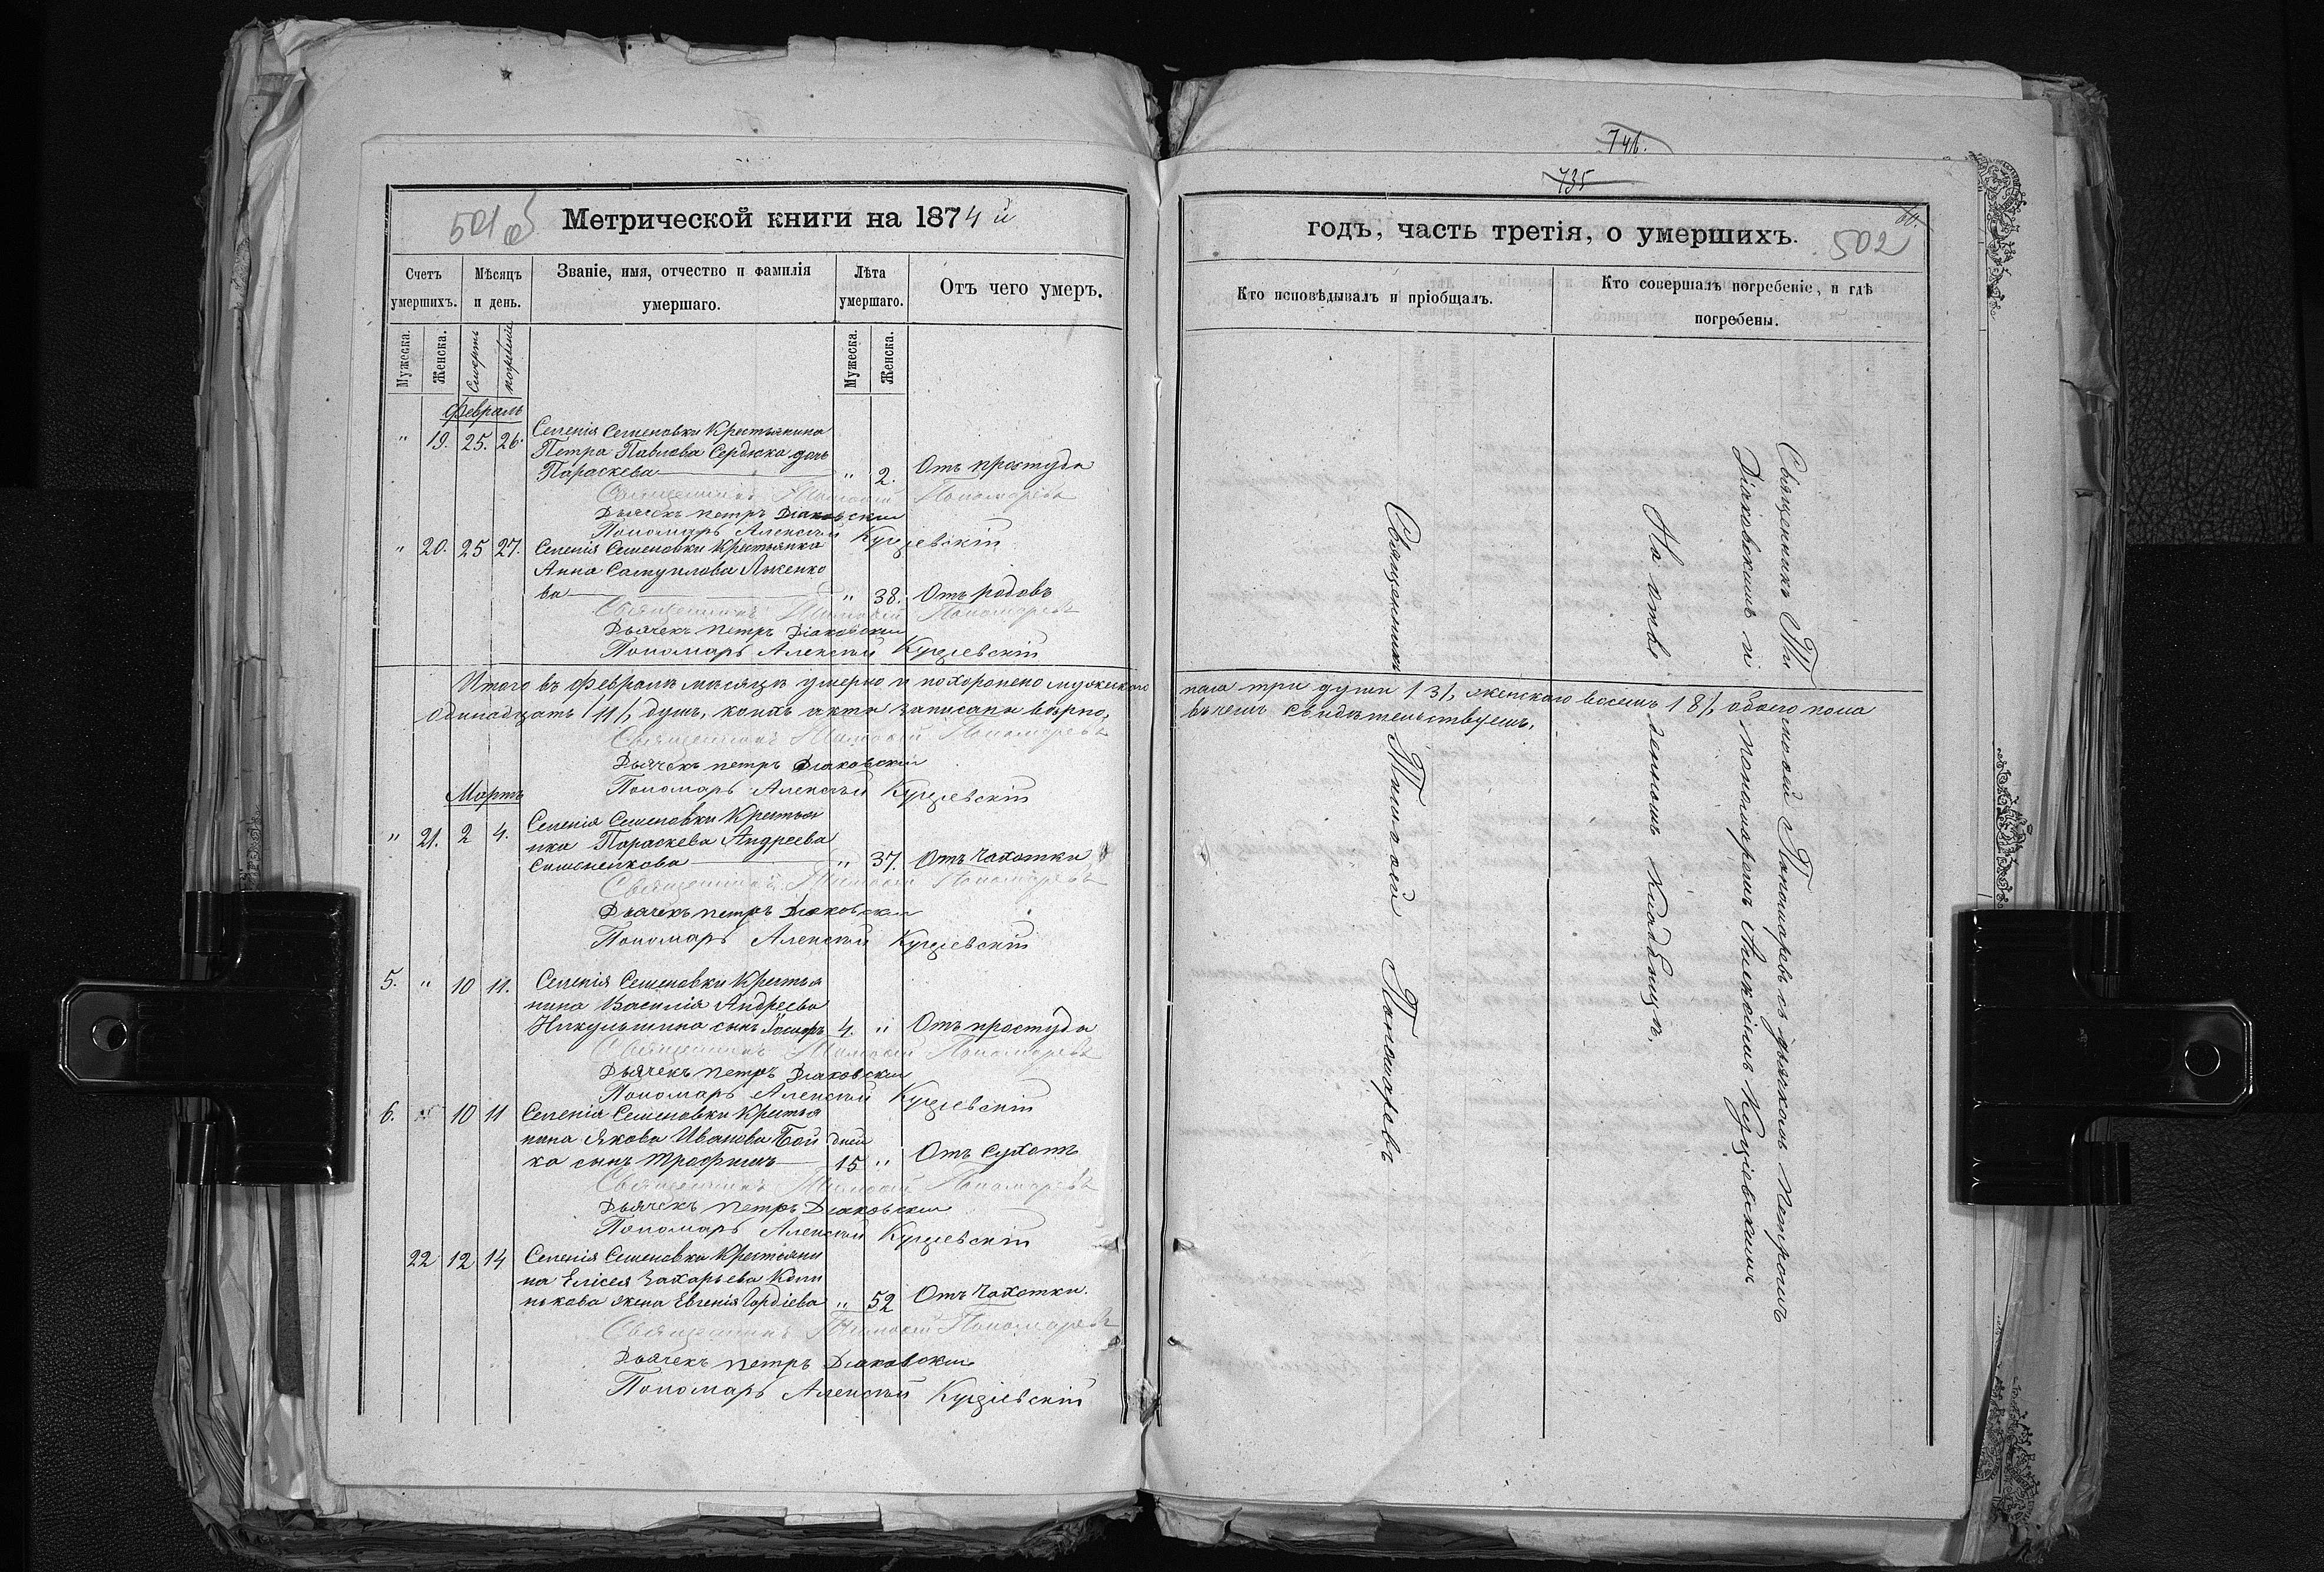 501 об
Метрической книги на 1874 й
Счетъ умершихъ.
Мѣсяцъ и день.
Званіе, имя, отчество и фамилія умершаго.
Лѣта умершаго.
Отъ чего умеръ.
Мужеска.
Женска.
Смерть
погребеній
Мужеска.
Женска.
Февраль
" 19. 25. 26. Селенія Семеновки Крестьянина
Петра Павлова Сердюка дочь
Параскева " 2. Отъ простуды
Священникъ Тимофей Пономаревъ
Дьячекъ петръ Діаковскій
Пономарь Алексѣй Куціевскій
" 20. 25 27. Селенія Семеновки Крестьянка
Анна Самуилова Лысенко
ва " 38. Отъ родовъ
Священникъ Тимофей Пономаревъ
Дьячекъ петръ Діаковскій
Пономарь Алексѣй Куціевскій
Итого въ Февралѣ мѣсяцѣ умерло и похоронено мужескаго
одинадцать /11/, душъ, коихъ акты записаны вѣрно,
Священникъ Тимофей Пономаревъ
Дьячекъ петръ Діаковскій
Пономарь Алексѣй Куціевскій
Мартъ
" 21. 2 4. Селенія Семеновки Крестья
нка Параскева Андреева
Симоненкова " 37. Отъ Чахотки
Священникъ Тимофей Пономаревъ
Дьячекъ петръ Діаковскій
Пономарь Алексѣй Куціевскій
5. " 10 11. Селенія Семеновки Крестья
нина Василія Андреева
Никульшина сынъ 4. " Отъ простуды
Священникъ Тимофей Пономаревъ
Дьячекъ петръ Діаковскій
Пономарь Алексѣй Куціевскій
6. " 10 11 Селенія Семеновки Крестья
нина Якова Иванова Бой дней
ка сынъ Трофимъ 15 " Отъ Сухотъ
Священникъ Тимофей Пономаревъ
Дьячекъ петръ Діаковскій
Пономарь Алексѣй Куціевскій
22 12 14 Селенія Семеновки Крестьяни
на Елисея Захарьева
жена Евгенія Гордіева " 52 Отъ Чахотки.
Священникъ Тимофей Пономаревъ
Дьячекъ петръ Діаковскій
Пономарь Алексѣй Куціевскій
746.
735
годъ, часть третія, о умершихъ.
502
Кто исповѣдывалъ и пріобщалъ.
Кто совершалъ погребеніе, и гдѣ погребены.
пола три души /3/, женскаго восемь /8/, обоего пола
въ чемъ свидѣтельствуемъ,
Священникъ Тимофей Пономаревъ
Священникъ Тимофей Пономаревъ съ дьячкомъ Петромъ
Діаковскимъ и пономаремъ Алексѣемъ Куціевскимъ
На отве
денномъ кладбищѣ.